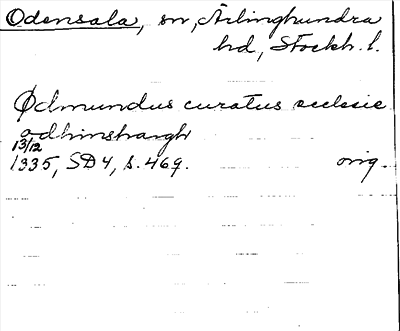 Odensala, sn, Ärlinghundra
hd, Stockh. l.
Ødmundus curatus ecclesie
odhinshargh
13/12
1335, SD 4, s. 469. orig.